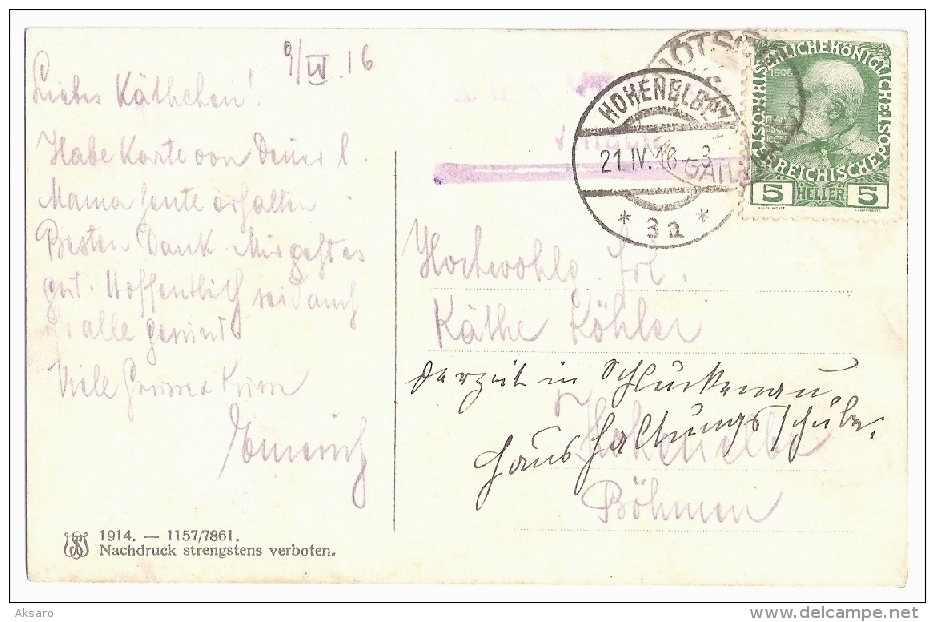 9/IV. 16
Liebes Käthchen!
Habe Karte von Deiner l.
Mama heute erhalten
Besten Dank. Mir geht es
gut. Hoffentlich seid auch
Ihr alle gesund
Viele Grüsse + Küsse
Emerich
HOHENELBE
21.IV.16
* 3a *
KÖTSCH
GAIL
5 HELLER 5
Hochwohlg. Frl.
Käthe Köhler
derzeit in Schluckenau
Haushaltungsschule.
Hohenelbe
Böhmen
1914. — 1157/7861.
Nachdruck strengstens verboten.
Aksaro
delcampe.net